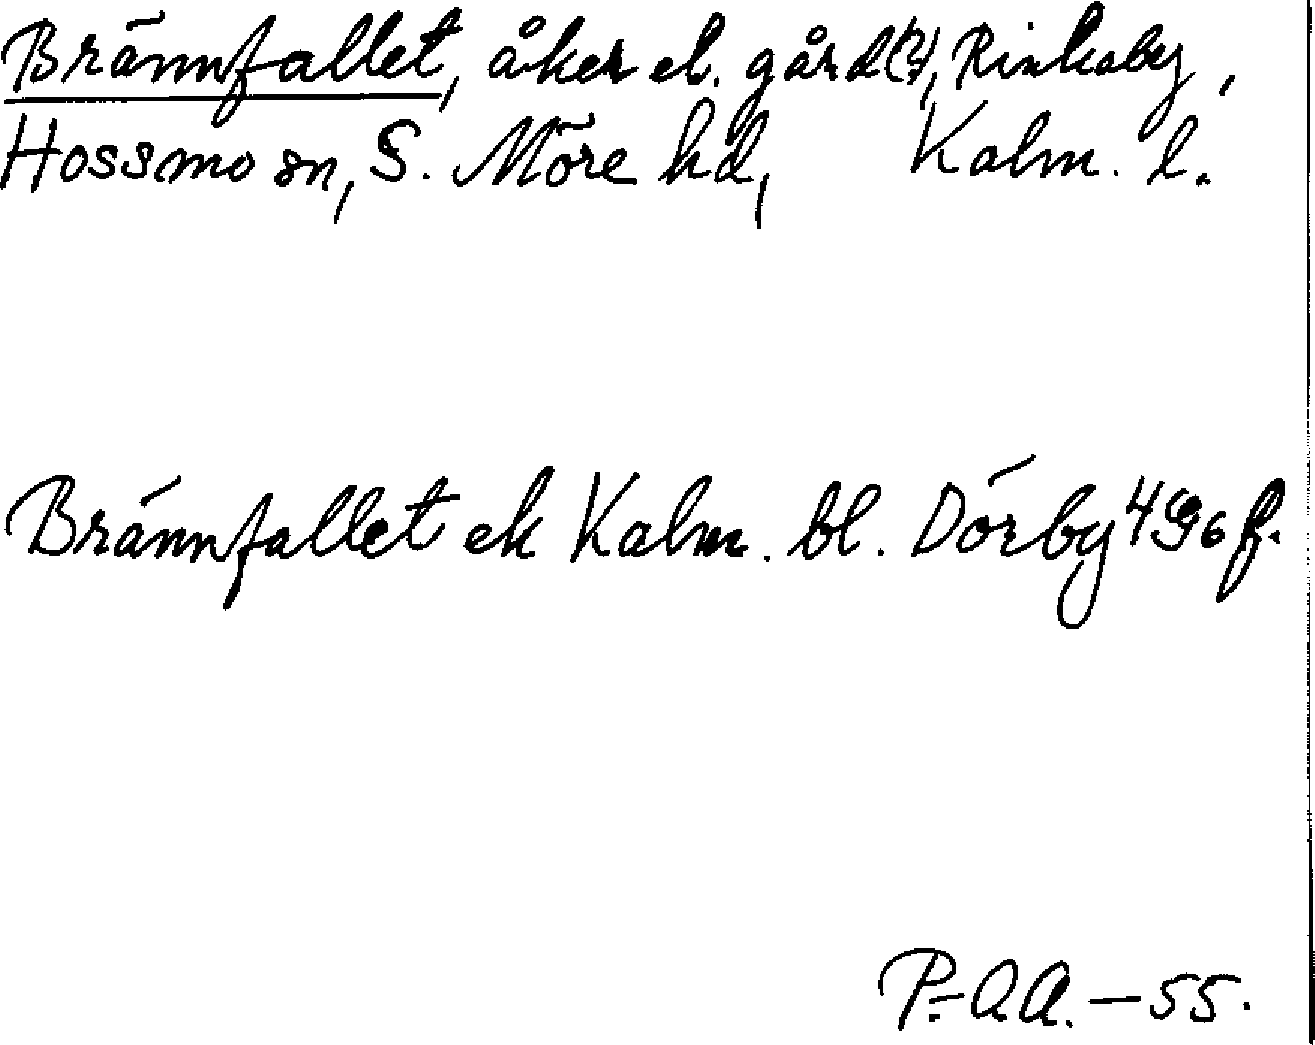 Brännfallet, åker el. gård(?), Rinkaby,
Hossmo sn, S. Möre hd, Kalm. l.
Brännfallet ek Kalm. bl. Dörby 496 ff.
P.-A.A. – 55.